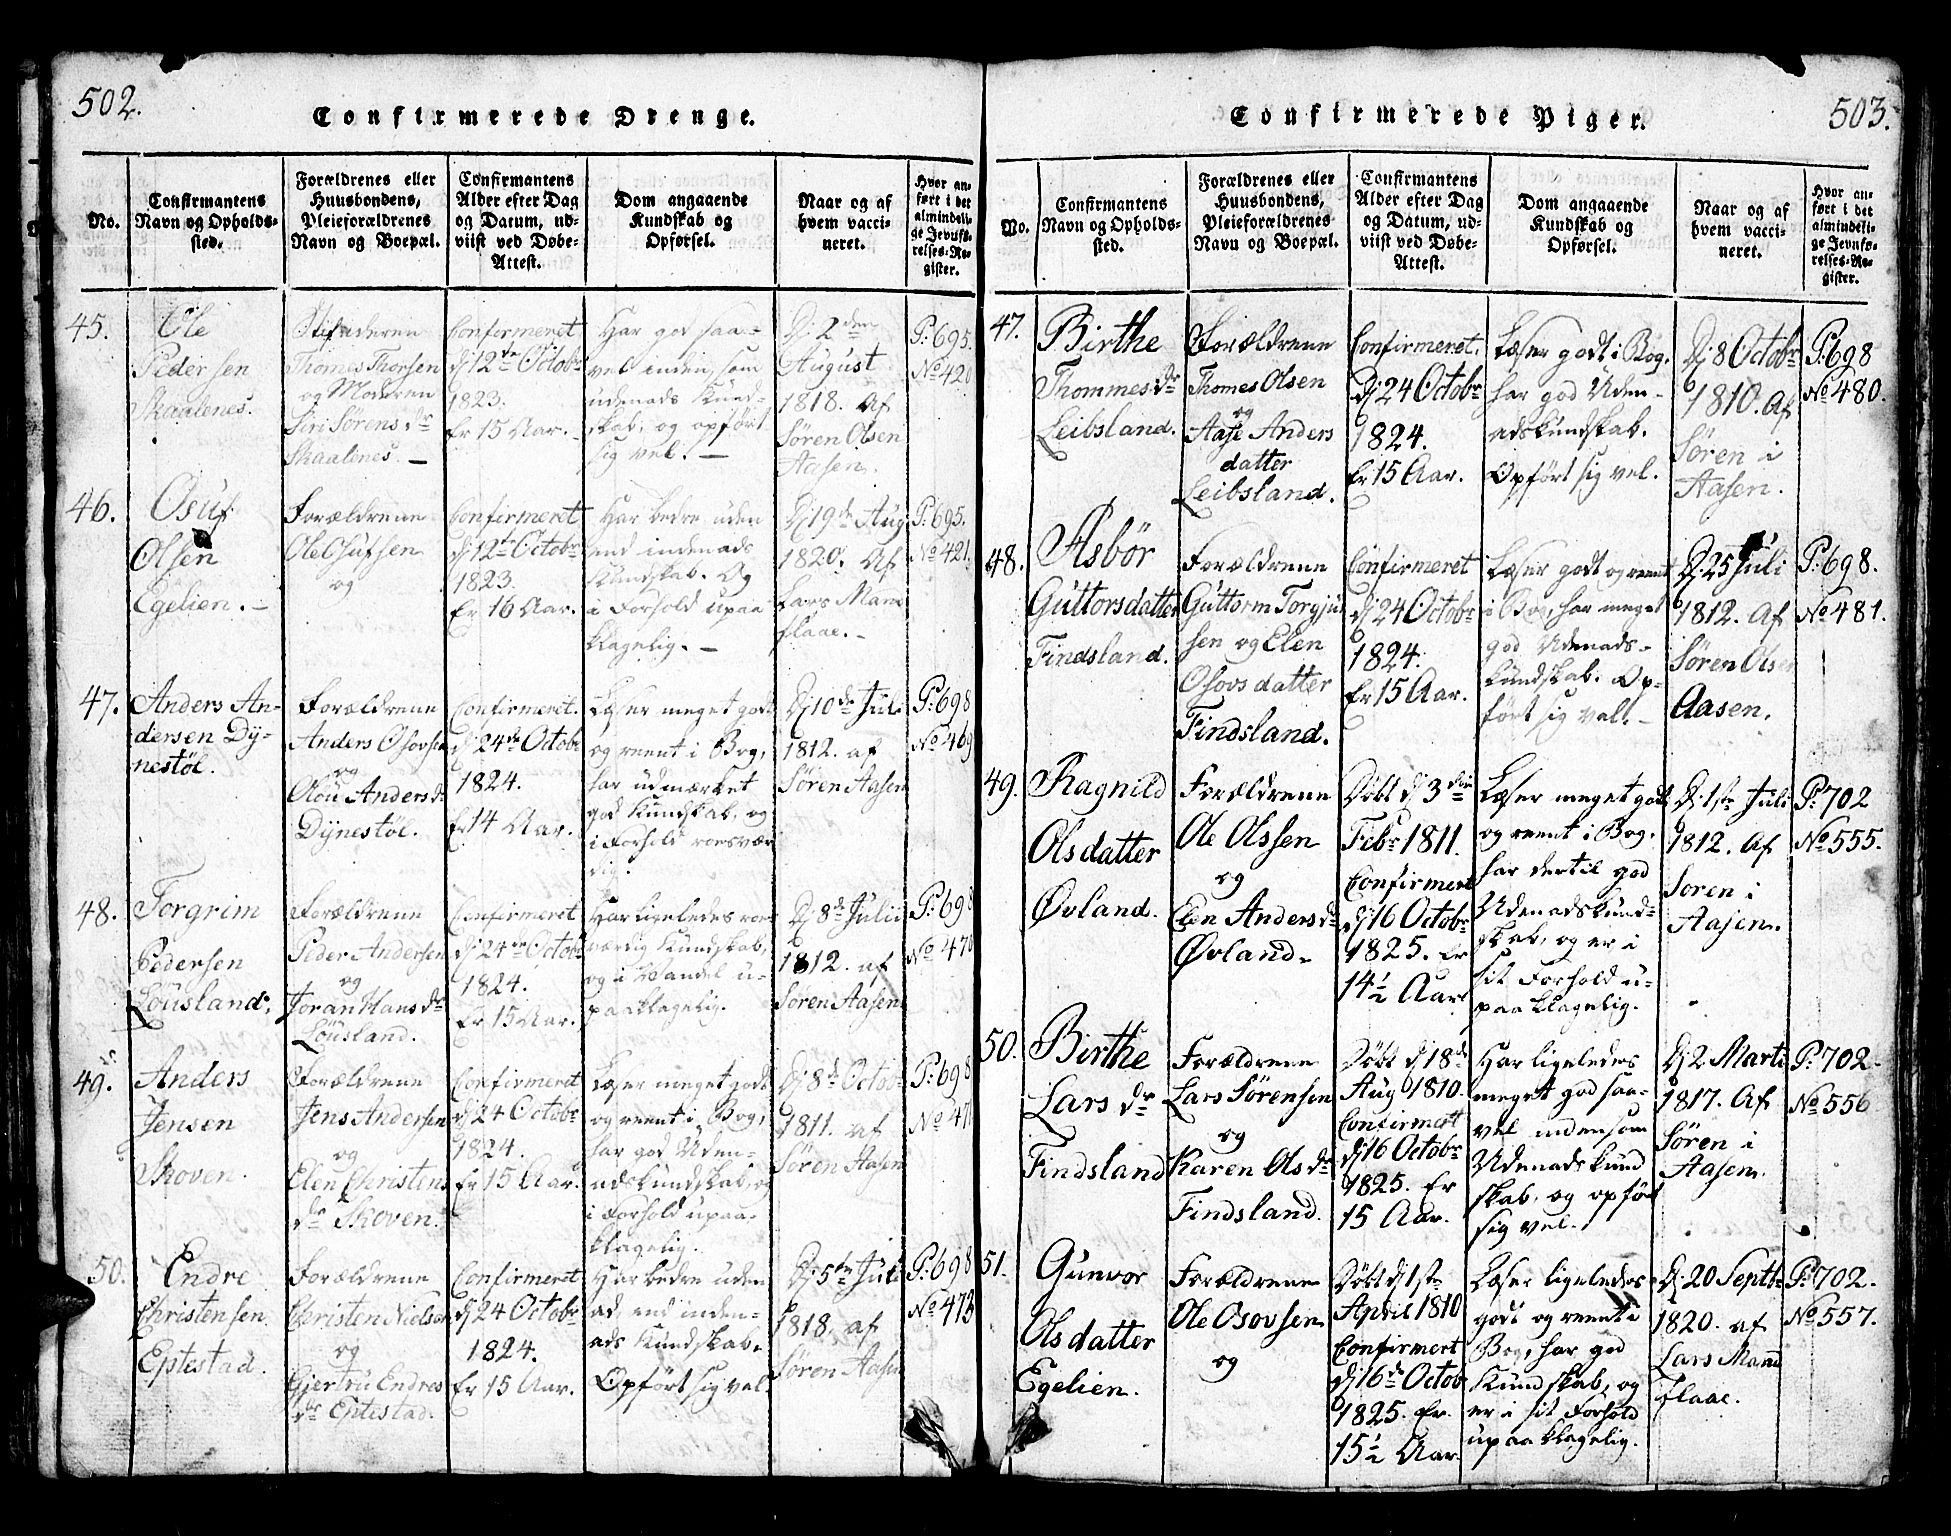 502.
Confirmerede Drenge.
No.
Confirmantens
Navn og Opholds-
sted.
Forældrenes eller
Huusbondens,
Pleieforældrenes
Navn og Boepæl.
Confirmantens
Alder efter Dag
og Datum, ud-
viist ved Døbe-
Attest.
Dom angaaende
Kundskab og
Opførsel.
Naar og af
hvem vacci-
neret.
Hvor an-
ført i det
almindeli-
ge Jevnfø-
relses-Re-
gister.
45.
Ole
Pedersen
Skaalenes.
Stifaderen
Thomes Thorsen
og Moderen
Siri Sørens dr
Skaalenes. –
Confirmeret
dj 12te Octobr
1823.
Er 15 Aar.
Har god saa-
vel inden, som
udenads Kund-
skab, og opført
sig vel. –
Dj 2den
August
1818. Af
Søren Olsen
Aasen.
P. 695.
No 420
46.
Osuf
Olsen
Egelien. –
Forældrene
Ole Osufsen
og
Confirmeret
dj 12te Octobr
1823.
Er 16 Aar.
Har bedre uden
end indenads
Kundskab. Og
i Forhold upaa
klagelig. –
Dj 19de Aug
1820. Af
Lars Mann
flaae. –
P. 695.
No 421.
47.
Anders An-
dersen Dÿ-
nestøl.
Forældrene
Anders Osovsen
og
Alou Anders dr
Dÿnestøl.
Confirmeret.
dj 24de Octobr
1824.
Er 14 Aar.
Læser meget godt
og reent i Bog,
har udmærket
god Kundskab, og
i Forhold roesvær
dig.
Dj 10de Juli
1812. af
Søren Aasen
P. 698
No 469
48.
Torgrim
Pedersen
Lousland.
Forældrene
Peder Andersen
og
Joran Hans dr
Lousland.
Confirmeret
dj 24de Octobr
1824.
Er 15 Aar.
Har ligeledes roes-
værdig Kundskab,
og i Vandel u-
paaklagelig.
Dj 8de Julii
1812. af
Søren Aasen
P. 698
No 470
49.
Anders
Jensen
Skoven.
Forældrene
Jens Andersen
og
Elen Christens
dr Skoven.
Confirmeret
dj 24 Octobr
1824.
Er 15 Aar.
Læser meget godt
og reent i Bog,
har god Uden-
adskundskab, og
i Forhold upaa-
klagelig.
Dj 8de Octobr
1811. af
Søren Aasen
P. 698
No 471
50.
Endre
Christensen
Eptestad.
Forældrene
Christen Nielsen
og
Gjertru Endres
dr Eptestad.
Confirmeret
dj 24 Octobr
1824.
Er 15 Aar.
Har bedre uden
ad end inden-
ads Kundskab.
Opført sig vel
Dj 5te Juli
1818. af
Søren Aasen
P. 698
No 473
503.
Confirmerede Piger.
No.
Confirmantens
Navn og Opholds-
sted.
Forældrenes eller
Huusbondens,
Pleieforældrenes
Navn og Boepæl.
Confirmantens
Alder efter Dag
og Datum, ud-
viist ved Døbe-
Attest.
Dom angaaende
Kundskab og
Opførsel.
Naar og af
hvem vacci-
neret.
Hvor an-
ført i det
almindeli-
ge Jevnfø-
relses-Re-
gister.
47.
Birthe
Thommes dr
Leibsland.
Forældrene
Thomes Olsen
og
Aase Anders
datter
Leibsland.
Confirmeret.
Dj 24 Octobr
1824.
Er 15 Aar.
Læser godt i Bog,
har god Uden-
adskundskab.
Opført sig vel.
Dj 8 Octobr
1810. Af
Søren i
Aasen.
P. 698
No 480.
48.
Asbör
Guttorsdatter
Findsland.
Forældrene
Guttorm Torgju
sen og Elen
Osovs datter
Findsland.
Confirmeret
dj 24 Octobr
1824.
Er 15 Aar.
Læser godt og reent
i Bog, har meget
god Udenads-
kundskab. Op-
ført sig vel. –
Dj 25 Juli
1812. Af
Søren Olsen
Aasen.
P. 698.
No 481.
49.
Ragnild
Olsdatter
Øvland.
Forældrene
Ole Olssen
og
Elen Anders dr
Øvland.
Døbt dj 3die
Febr 1811.
Confirmert
dj 16 Octobr
1825. Er
14½ Aar
Læser meget godt
og reent i Bog.
har dertil god
Udenadskund-
skab, og er i
sit Forhold u-
paaklagelig.
Dj 1ste Juli
1812. Af
Soren i
Aasen.
P. 702
No 555.
50.
Birthe
Lars dr
Findsland
Forældrene
Lars Sørensen
og
Karen Ols dr
Findsland.
Døbt dj 18de
Aug 1810.
Confirmert
dj 16 Octobr
1825. Er
15 Aar.
Har ligeledes
meget god saa-
vel inden som
Udenadskund
skab, og opført
sig vel.
Dj 2 Marti
1817. Af
Søren i
Aasen.
P. 702.
No 556
51.
Gunvor
Olsdatter
Egelien.
Forældrene
Ole Osovsen
og
Døbt dj 1ste
April 1810
Confirmert
dj 16de Octob
1825. Er.
15½ Aar.
Læser ligeledes
godt og reent i
Bog, har god
Kundskab, og
er i sit Forhold
upaaklagelig.
Dj 20 Septbr
1820. af
Lars Mann
flaae.
P. 702.
No 557.